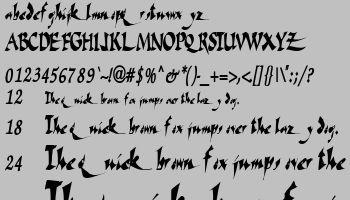 abcdefghijk lmnopq rstuvwx yz
ABCDEFGHIJKL MNOPQ RSTUVWXYZ
0123456789`~!@#$%^&*()-_+=>,<[]{}|\"':;/?
12 The q uick brown f ox jumps over the laz y dog.
18 The q uick brown f ox jumps over the laz y dog.
24 The q uick brown f ox jumps over the